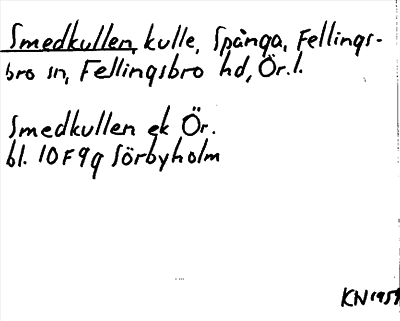 Smedkullen, kulle, Spånga, Fellings-
bro sn, Fellingsbro hd, Ör. l.
Smedkullen ek Ör.
bl. 10F9g Sörbyholm
KN 1959